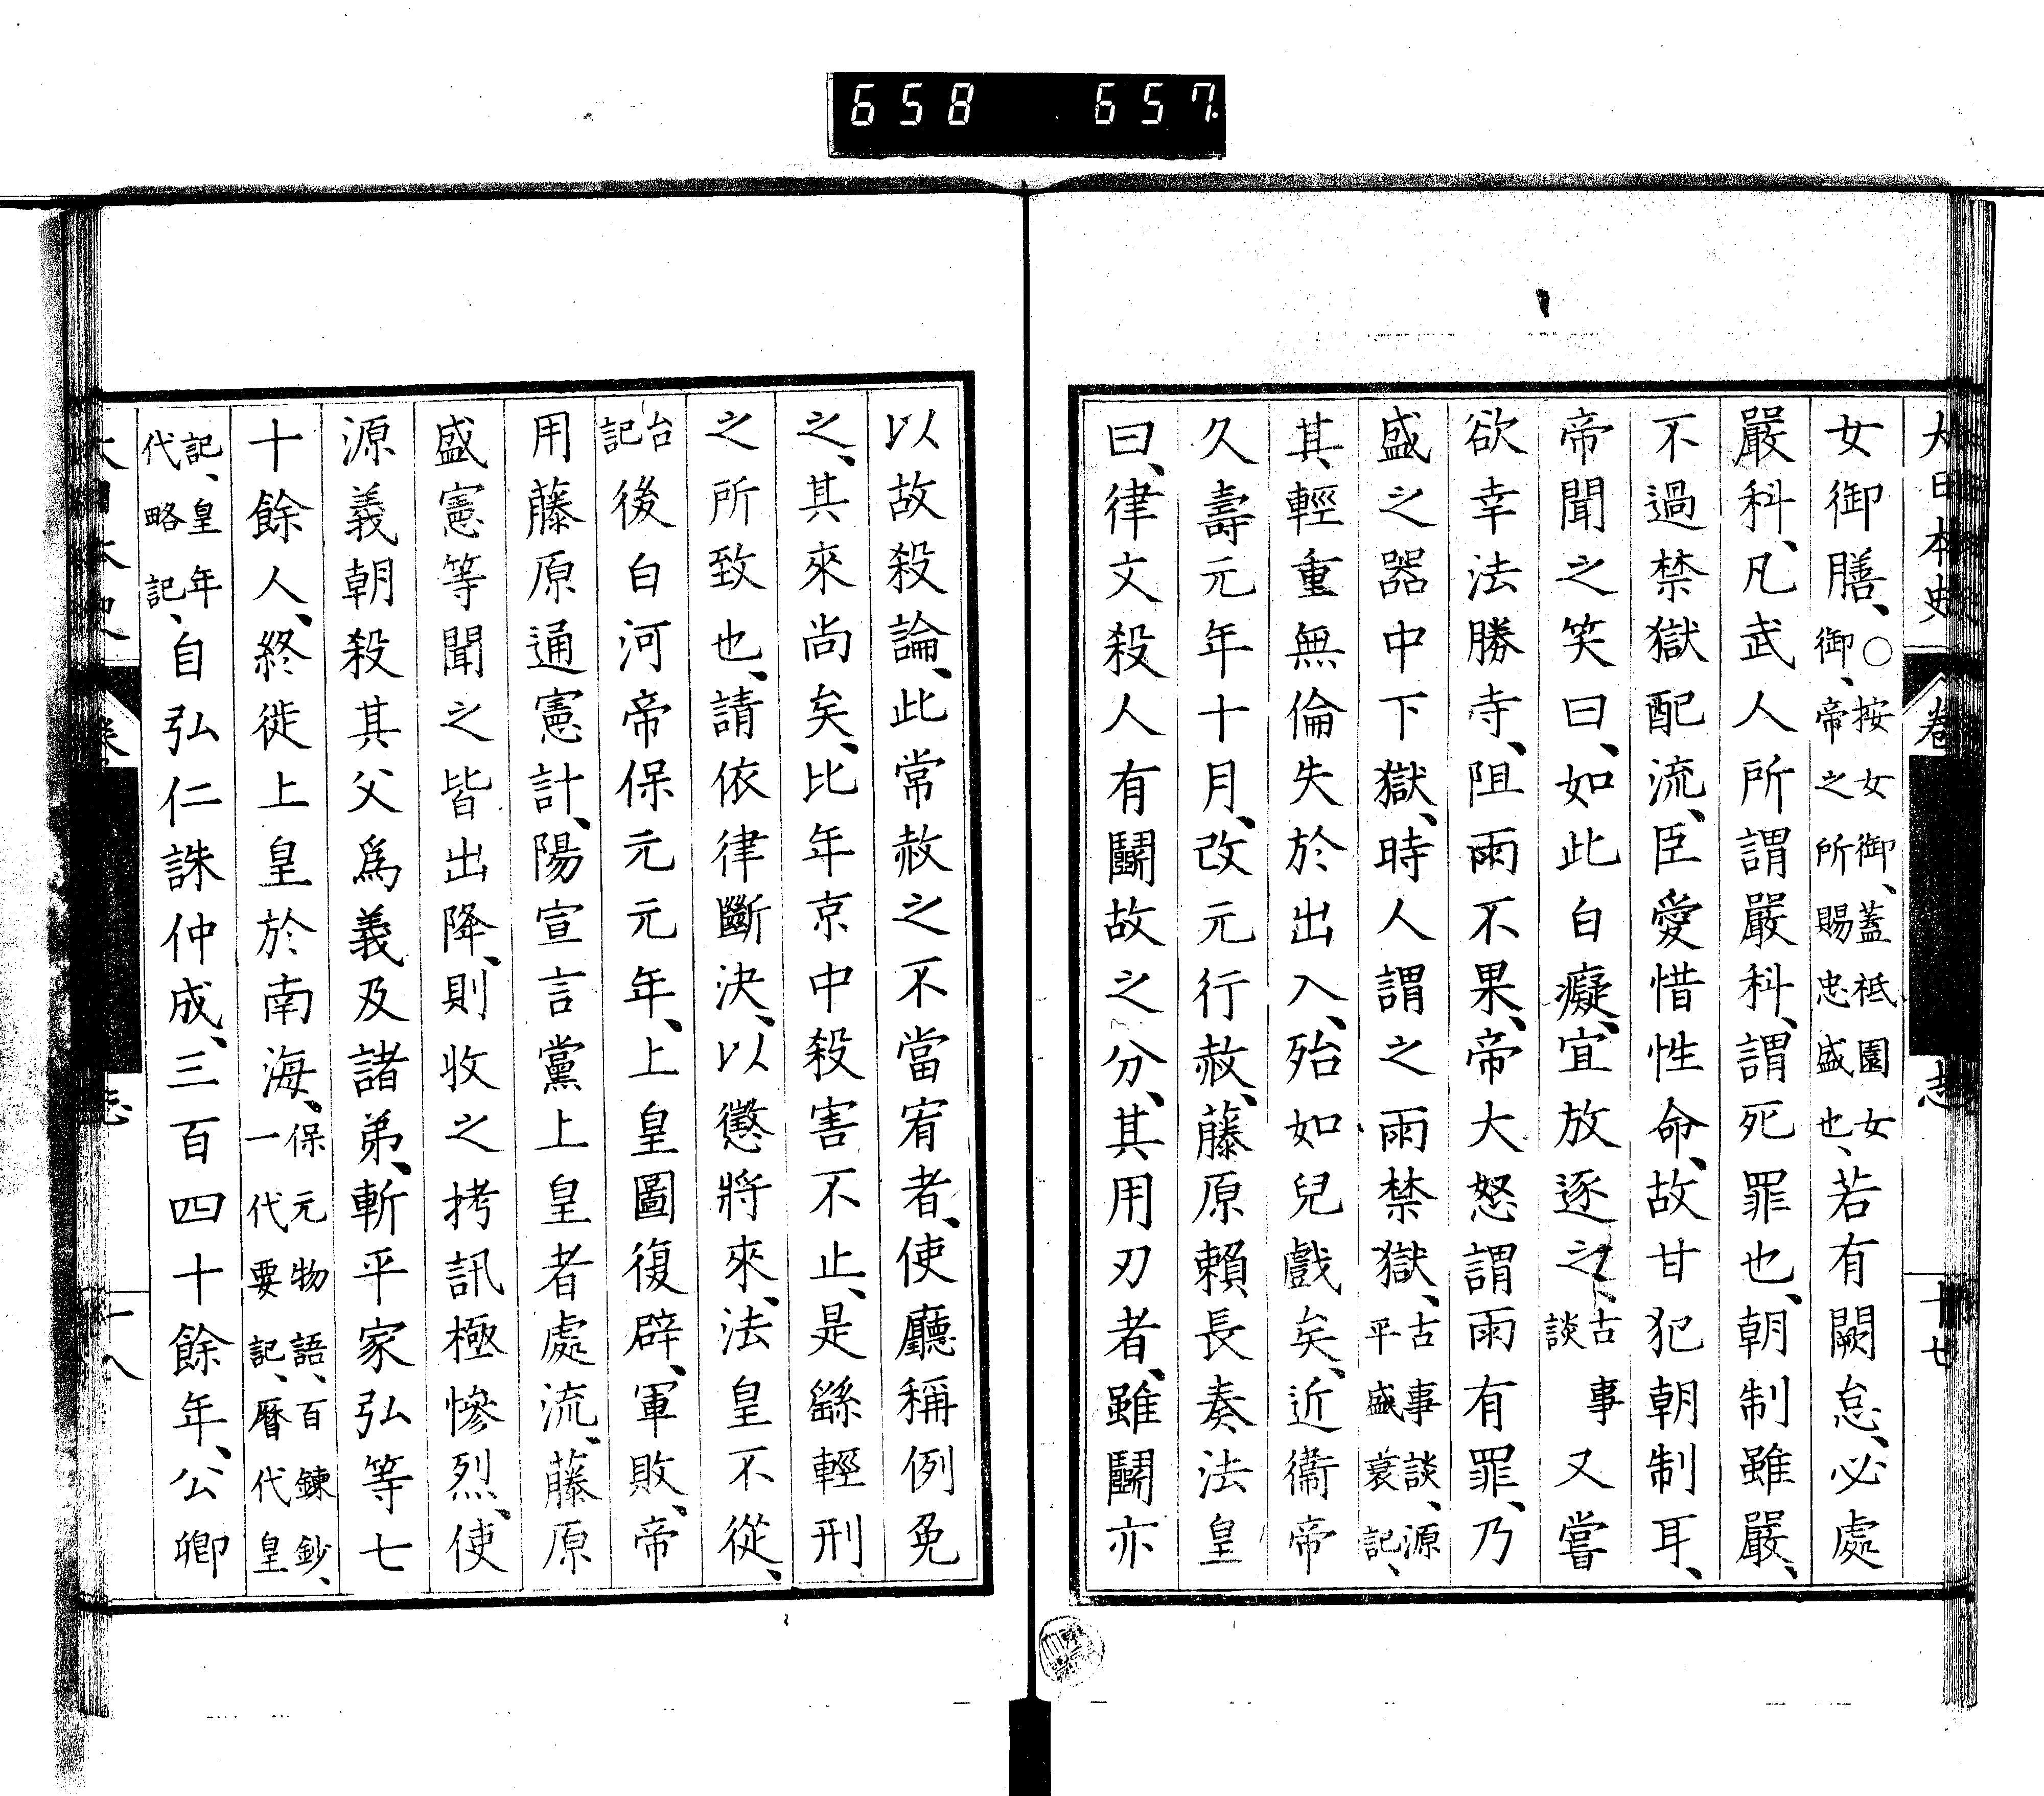 658 657
大日本史 卷 志 十七
女御膳、○按女御、蓋祗園女御、帝之所賜忠盛也、若有闕怠、必處
嚴科、凡武人所謂嚴科、謂死罪也、朝制雖嚴、
不過禁獄配流、臣愛惜性命、故甘犯朝制耳、
帝聞之笑曰、如此白癡、宜放逐之、古事談又嘗
欲幸法勝寺、阻雨不果、帝大怒謂雨有罪、乃
盛之器中下獄、時人謂之雨禁獄、古事談、源平盛衰記、
其輕重無倫失於出入、殆如兒戲矣、近衞帝
久壽元年十月、改元行赦、藤原賴長奏法皇
曰、律文殺人有鬭故之分、其用刃者、雖鬭亦
以故殺論、此常赦之不當宥者、使廳稱例免
之、其來尚矣、比年京中殺害不止、是繇輕刑
之所致也、請依律斷決、以懲將來、法皇不從、
台記後白河帝保元元年、上皇圖復辟、軍敗、帝
用藤原通憲計、陽宣言黨上皇者處流、藤原
盛憲等聞之皆出降、則收之拷訊極慘烈、使
源義朝殺其父爲義及諸弟、斬平家弘等七
十餘人、終徙上皇於南海、保元物語、百鍊鈔、一代要記、曆代皇
記、皇年代略記、自弘仁誅仲成、三百四十餘年、公卿
志 十八